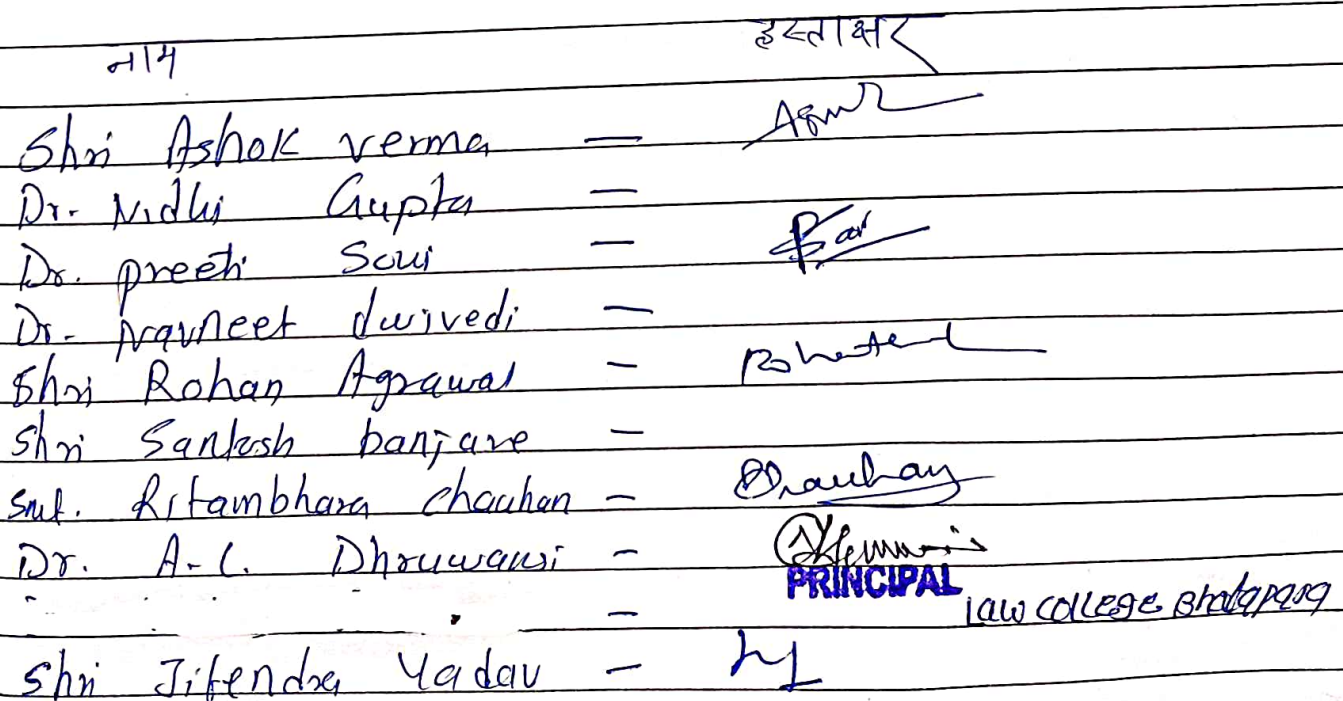 नाम हस्ताक्षर
Shri Ashok verma —
Dr. Nidhi Gupta —
Dr. preeti Soni —
Dr. pravneet dwivedi —
Shri Rohan Agrawal —
Shri Santosh banjare —
Smt. Ritambhara chauhan — Chauhan
Dr. A.C. Dhruwansi —
PRINCIPAL
— Law college Bhatapara
Shri Jitendra Yadav —